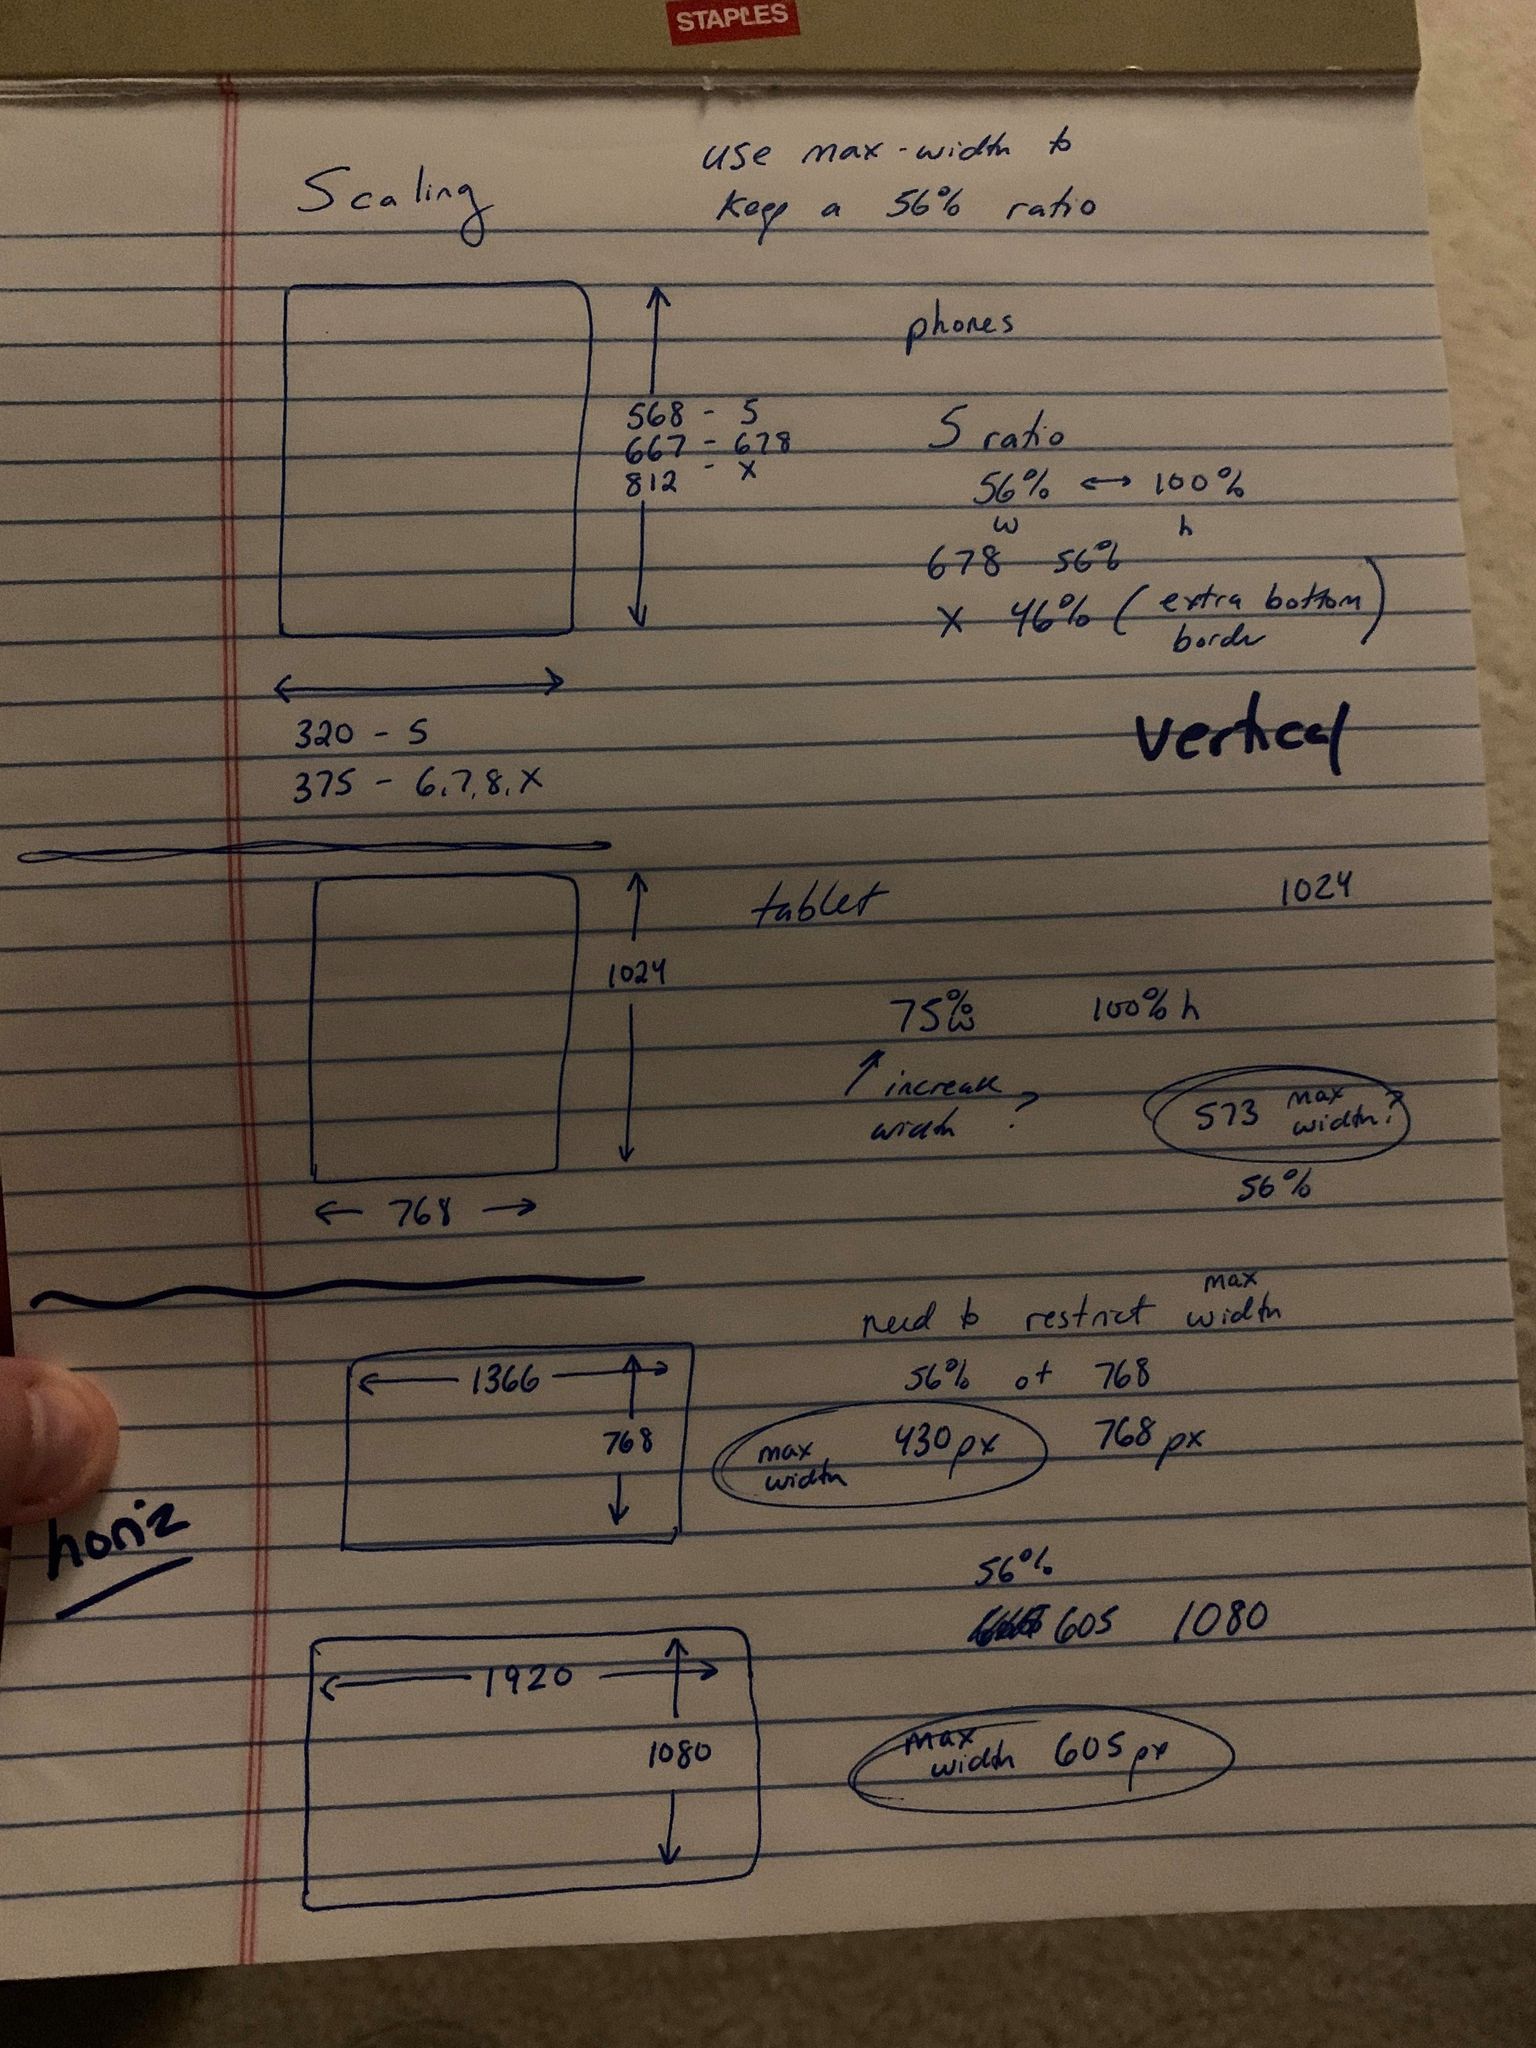 STAPLES
Scaling
use max-width to
keep a 56% ratio
phones
568 - 5
667 - 678
812 - X
5 ratio
56% ↔ 100%
w h
678 56%
X 46% (extra bottom
border)
320 - 5
375 - 6,7,8,X
vertical
tablet
1024
1024
75% w 100% h
↑ increase
width ?
573 max
width?
56%
← 768 →
need to restrict max
width
56% of 768
1366
768
max
width 430px 768px
horiz
56%
605 1080
1920
1080
max
width 605px